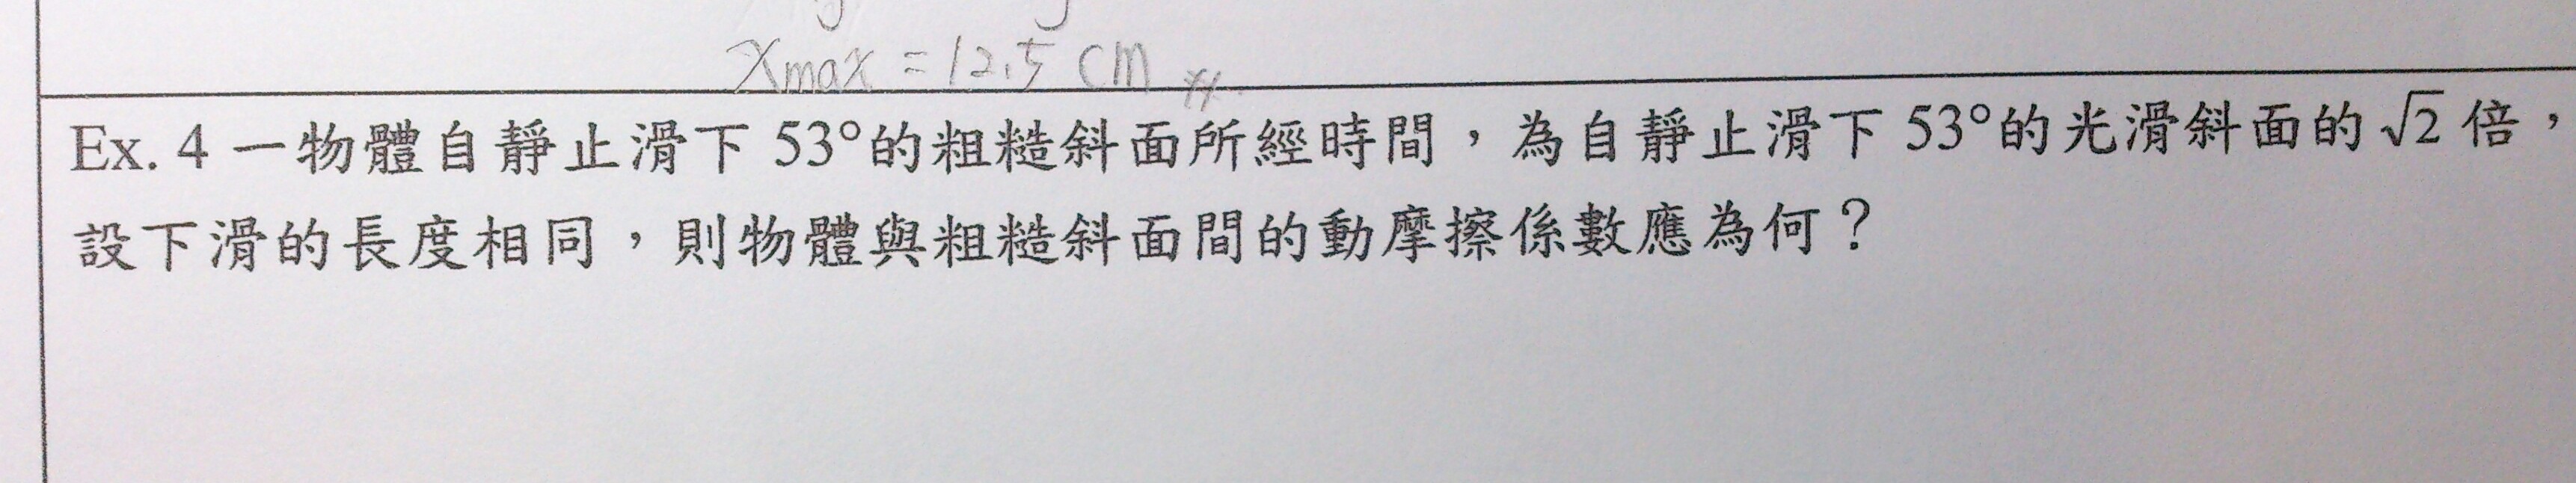 Xmax = 12.5 cm
Ex. 4 一物體自靜止滑下 53°的粗糙斜面所經時間，為自靜止滑下 53°的光滑斜面的 √2 倍，
設下滑的長度相同，則物體與粗糙斜面間的動摩擦係數應為何？